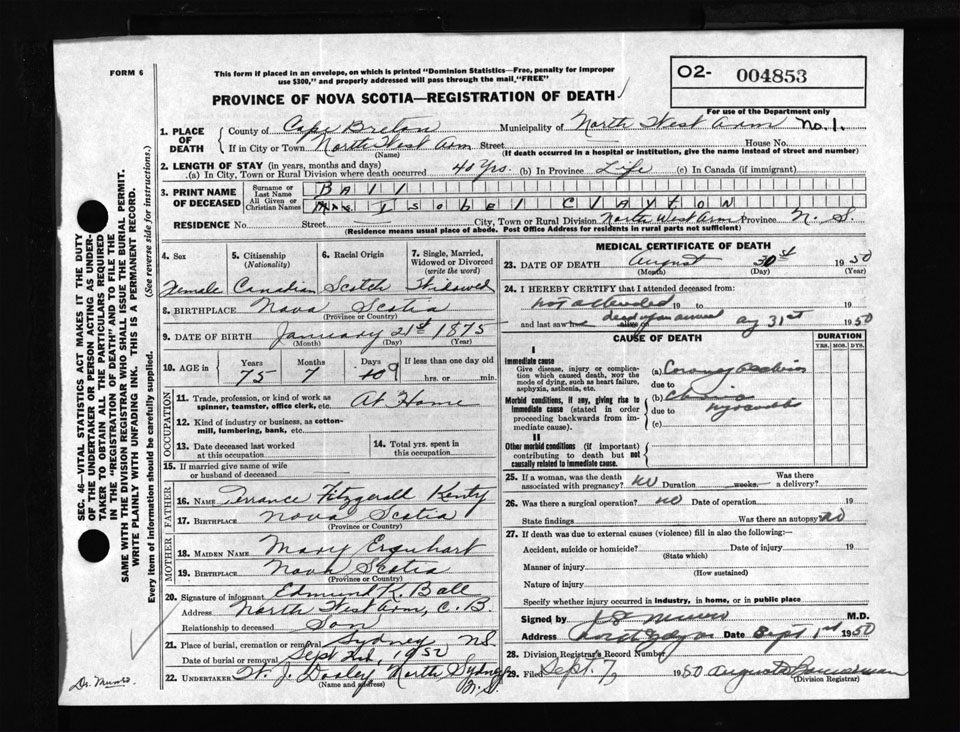 FORM 6
This form if placed in an envelope, on which is printed "Dominion Statistics—Free, penalty for improper
use $300," and properly addressed will pass through the mail "FREE"
O2- 004853
For use of the Department only
PROVINCE OF NOVA SCOTIA—REGISTRATION OF DEATH
1. PLACE OF DEATH
County of Cape Breton Municipality of North West Arm No. 1.
If in City or Town North West Arm Street House No.
(Name) (If death occurred in a hospital or institution, give the name instead of street and number)
2. LENGTH OF STAY (in years, months and days)
(a) In City, Town or Rural Division where death occurred 40 yrs. (b) In Province Life (c) In Canada (if immigrant)
3. PRINT NAME OF DECEASED
Surname or Last Name BALL
All Given or Christian Names Mrs ISOBEL CLAYTON
RESIDENCE No. Street City, Town or Rural Division North West Arm Province N. S.
(Residence means usual place of abode. Post Office Address for residents in rural parts not sufficient)
4. Sex
Female
5. Citizenship (Nationality)
Canadian
6. Racial Origin
Scotch
7. Single, Married, Widowed or Divorced (write the word)
Widowed
8. BIRTHPLACE Nova Scotia
(Province or Country)
9. DATE OF BIRTH January 21st 1875
(Month) (Day) (Year)
10. AGE in Years Months Days If less than one day old
75 7 9 hrs. or min.
OCCUPATION
11. Trade, profession, or kind of work as
spinner, teamster, office clerk, etc. At Home
12. Kind of industry or business, as cotton-
mill, lumbering, bank, etc.
13. Date deceased last worked
at this occupation
14. Total yrs. spent in
this occupation
15. If married give name of wife
or husband of deceased
FATHER
16. NAME Fitzgerald
17. BIRTHPLACE Nova Scotia
(Province or Country)
MOTHER
18. MAIDEN NAME Mary Erquhart
19. BIRTHPLACE Nova Scotia
(Province or Country)
20. Signature of informant Edmund K. Ball
Address North West Arm, C. B.
Relationship to deceased Son
21. Place of burial, cremation or removal Sydney N.S.
Date of burial or removal Sept 2nd, 1950
22. UNDERTAKER W. J. Dooley North Sydney
(Name and address) N. S.
MEDICAL CERTIFICATE OF DEATH
23. DATE OF DEATH August 30st 1950
(Month) (Day) (Year)
24. I HEREBY CERTIFY that I attended deceased from:
not attended 19 to 19
and last saw h alive on dead upon arrival Ag 31st 1950
CAUSE OF DEATH
DURATION
YRS. MOS. DYS.
I
Immediate cause
Give disease, injury or complica-
tion which caused death, NOT the
mode of dying, such as heart failure,
asphyxia, asthenia, etc.
(a) Coronary
due to
Morbid conditions, if any, giving rise to
immediate cause (stated in order
proceeding backwards from im-
mediate cause).
(b) Chronic
due to myocarditis
(c)
II
Other morbid conditions (if important)
contributing to death but not
causally related to immediate cause.
25. If a woman, was the death
associated with pregnancy? no Duration weeks. Was there
a delivery?
26. Was there a surgical operation? no Date of operation 19
State findings Was there an autopsy? no
27. If death was due to external causes (violence) fill in also the following:
Accident, suicide or homicide? Date of injury 19
(State which)
Manner of injury
(How sustained)
Nature of injury
Specify whether injury occurred in industry, in home, or in public place
Signed by J. Munro M.D.
Address North Sydney Date Sept 1st 1950
28. Division Registrar's Record Number
29. Filed Sept. 7, 1950 Augusta
(Division Registrar)
SEC. 46—VITAL STATISTICS ACT MAKES IT THE DUTY
OF THE UNDERTAKER OR PERSON ACTING AS UNDER-
TAKER TO OBTAIN ALL THE PARTICULARS REQUIRED
IN THE "REGISTRATION OF DEATH" AND TO FILE THE
SAME WITH THE DIVISION REGISTRAR WHO SHALL ISSUE THE BURIAL PERMIT.
WRITE PLAINLY WITH UNFADING INK. THIS IS A PERMANENT RECORD.
Every item of information should be carefully supplied. (See reverse side for instructions.)
Dr. Munro